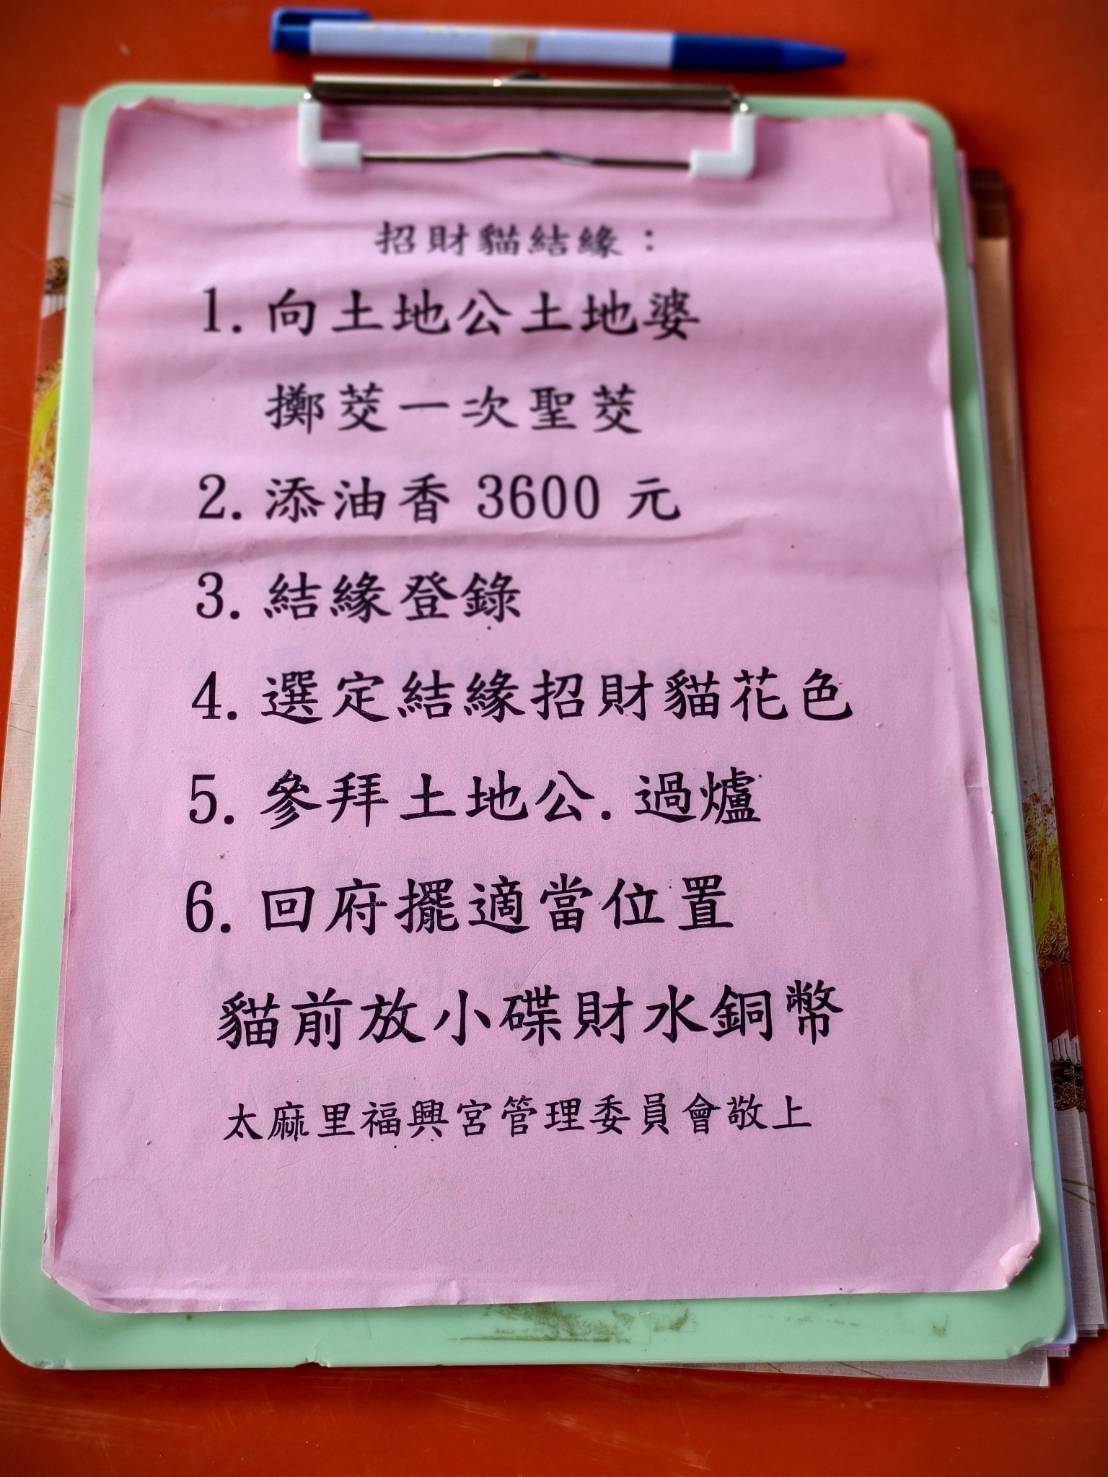 招財貓結緣：
1. 向土地公土地婆
擲筊一次聖筊
2. 添油香 3600 元
3. 結緣登錄
4. 選定結緣招財貓花色
5. 參拜土地公. 過爐
6. 回府擺適當位置
貓前放小碟財水銅幣
太麻里福興宮管理委員會敬上